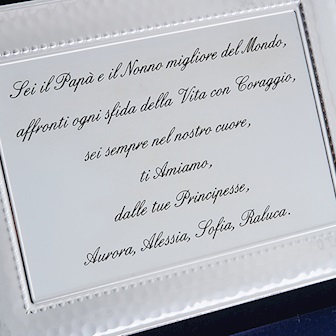 Sei il Papà e il Nonno migliore del Mondo,
affronti ogni sfida della Vita con Coraggio,
sei sempre nel nostro cuore,
ti Amiamo,
dalle tue Principesse,
Aurora, Alessia, Sofia, Raluca.